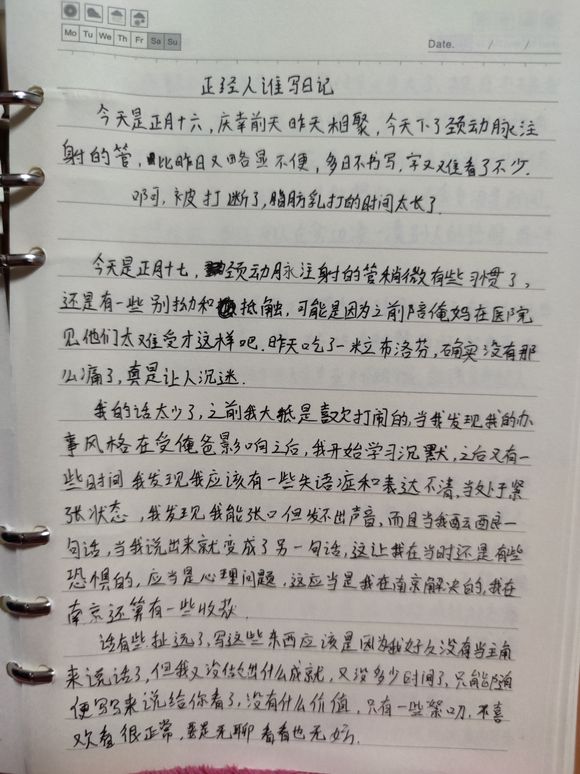 Mo Tu We Th Fr Sa Su
Date. / /
正经人谁写日记
今天是正月十六，庆幸前天昨天相聚，今天下了颈动脉注
射的管，比昨日又略显不便，多日不书写，字又又难看了不少.
啊，被打断了，脂肪乳打的时间太长了.
今天是正月十七，颈动脉注射的管稍微有些习惯了，
还是有一些别扭和抵触，可能是因为之前陪俺妈在医院
见他们太难受才这样吧.昨天吃了一粒布洛芬，确实没有那
么痛了，真是让人沉迷.
我的话太少了，之前我大抵是喜欢打闹的，当我发现我的办
事风格在受俺爸影响之后，我开始学习沉默，之后又有一
些时间我发现我应该有一些失语症和表达不清，当处于紧
张状态，我发现我能张口但发不出声音，而且当我酝酿一
句话，当我说出来就变成了另一句话，这让我在当时还是有些
恐惧的，应当是心理问题，这应当是我在南京解决的，我在
南京还算有一些收获.
话有些扯远了，写这些东西应该是因为我好久没有当主角
来说话了，但我又没做出什么成就，又没多少时间了，只能随
便写写来说给你看了，没有什么价值，只有一些絮叨，不喜
欢看很正常，要是无聊看看也无妨.